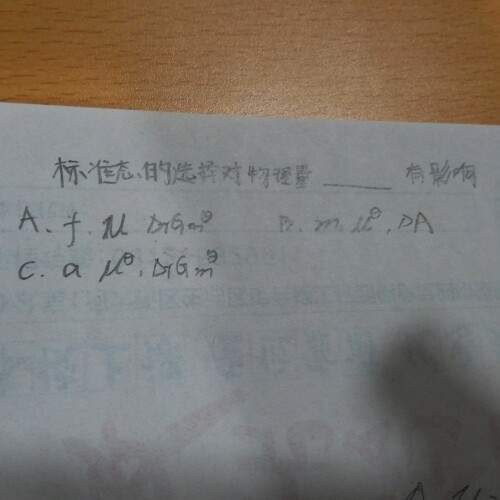 标准态的选择对物理量____有影响
A. f. μ ΔrGm^θ B. m. μ^θ, ΔA
C. a μ^θ, ΔrGm^θ